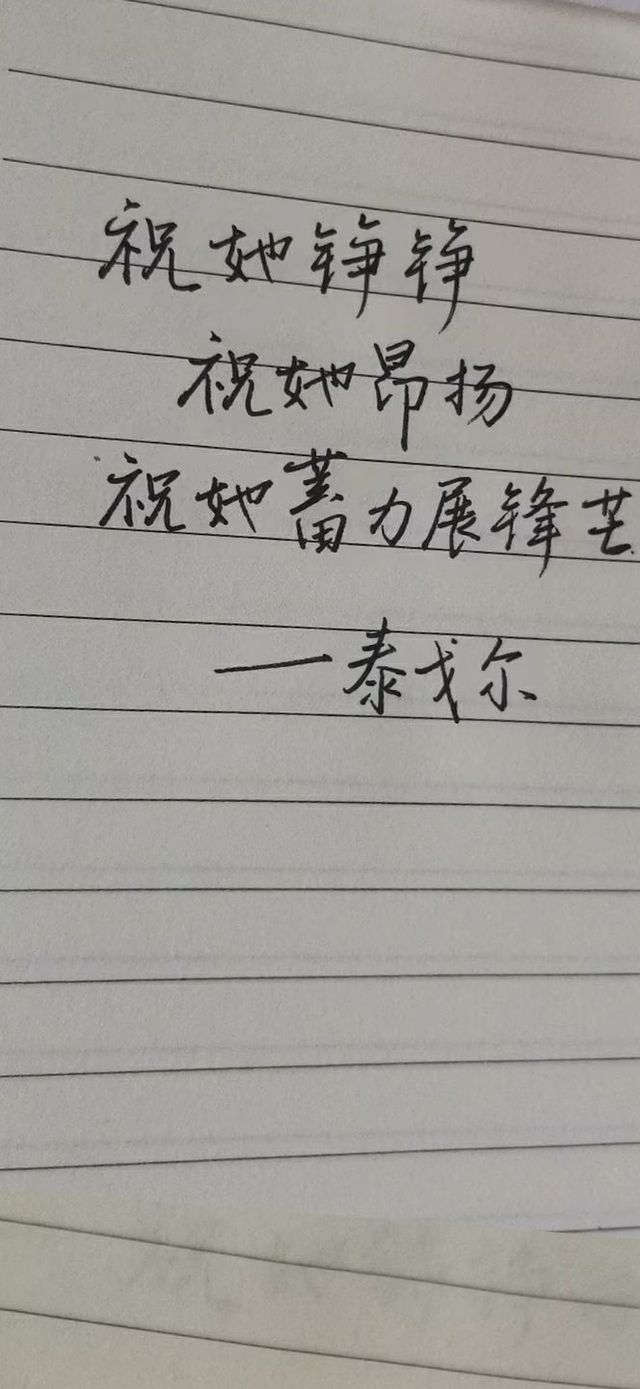 祝她铮铮
祝她昂扬
祝她蓄力展锋芒
—泰戈尔